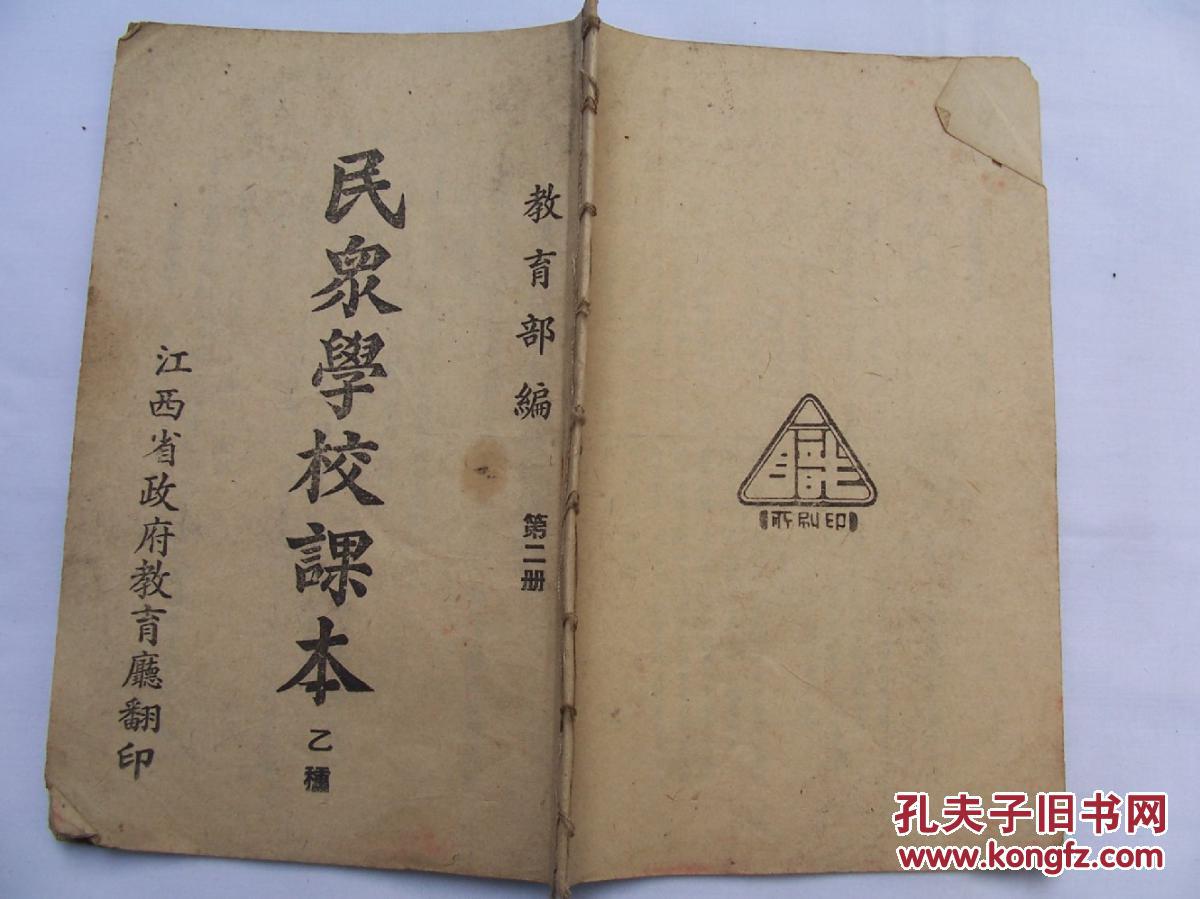 教育部編
第二册
民眾學校課本
乙種
江西省政府教育廳翻印
職
印刷所
孔夫子旧书网
www.kongfz.com